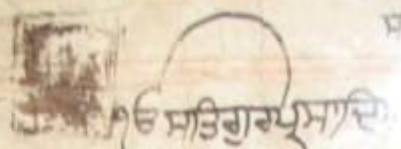 ੴ ਸਤਿਗੁਰਪ੍ਰਸਾਦਿ